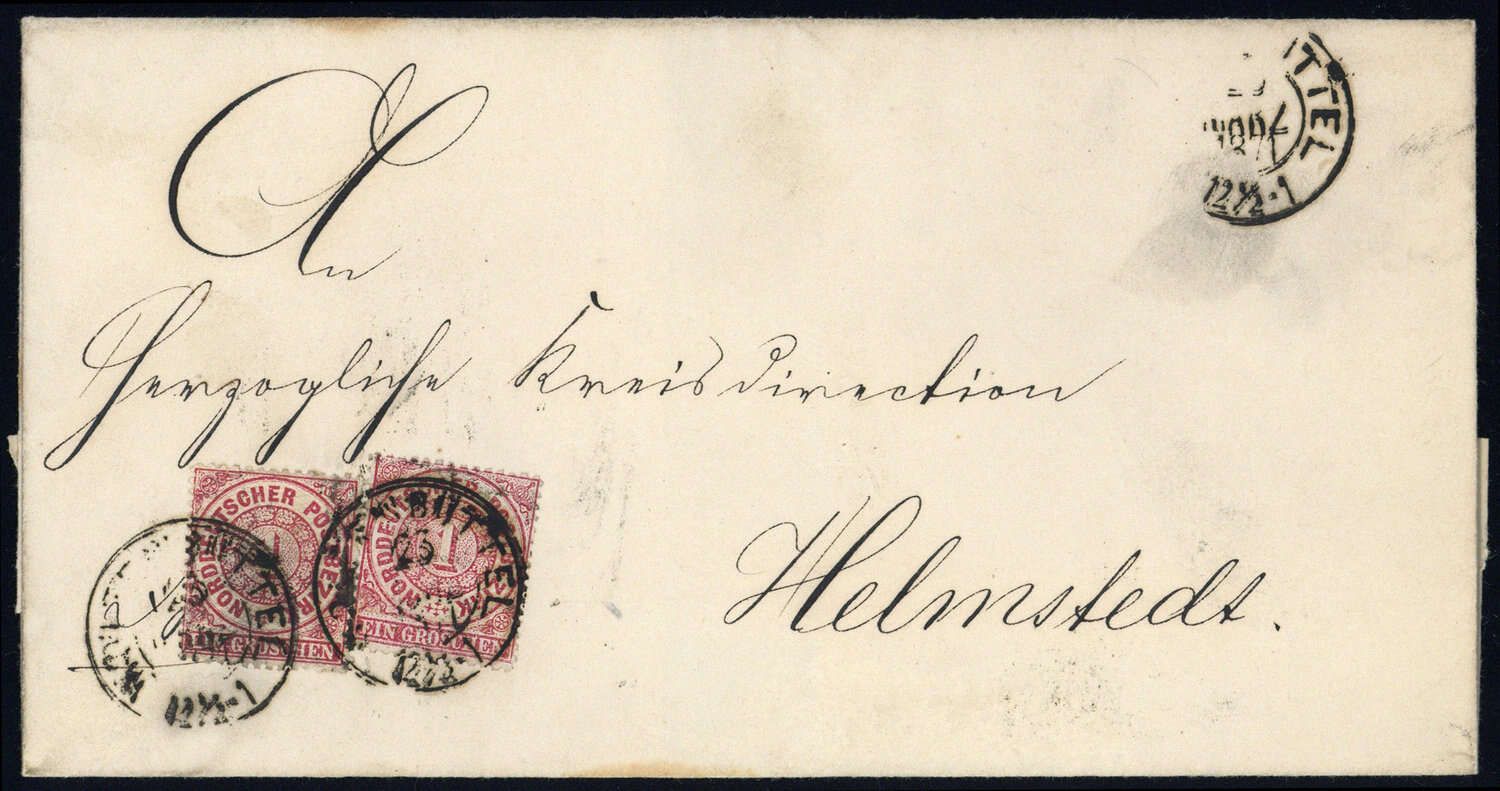 TTEL
12½-1
An
Herzogliche Kreisdirection
Helmstedt.
NORDDEUTSCHER POSTBEZIRK
1
EIN GROSCHEN
NORDDEUTSCHER POSTBEZIRK
1
EIN GROSCHEN
TTEL
12½-1
BÜTTEL
23
12½-1